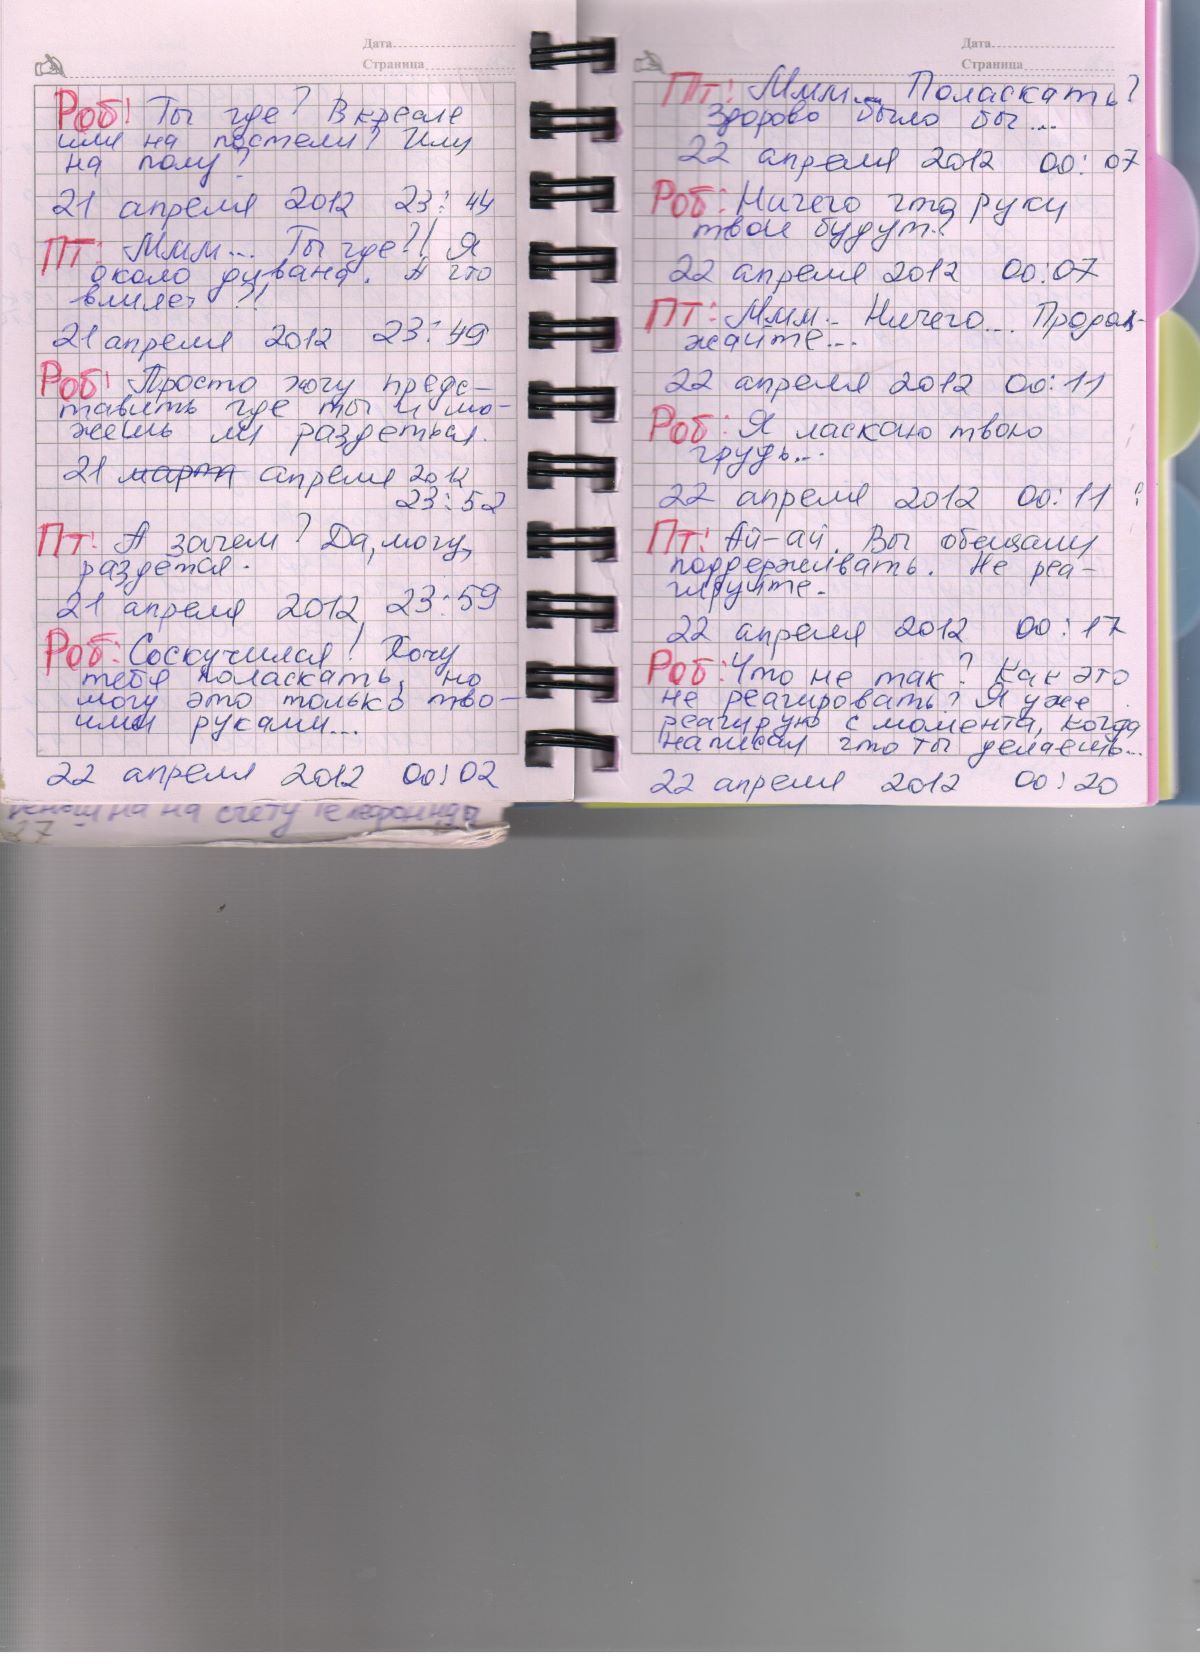 Дата
Страница
Роб! Ты где? В кресле
или на постели? Или
на полу?
21 апреля 2012 23:44
Пт: Ммм... Ты где?! Я
около дивана. А что
влияет?!
21 апреля 2012 23:49
Роб! Просто хочу предс-
тавить где ты и мо-
жешь ли раздеться.
21 март апреля 2012
23:52
Пт: А зачем? Да, могу,
раздется.
21 апреля 2012, 23:59
Роб: Соскучился! Хочу
тебя поласкать, но
могу это только тво-
ими руками...
22 апреля 2012 00:02
на счету
27
Дата
Страница
Пт: Ммм... Поласкать?
Здорово было бы...
22 апреля 2012 00:07
Роб: Ничего что руки
твои будут?
22 апреля 2012 00:07
Пт: Ммм.. Ничего... Продол-
жайте...
22 апреля 2012 00:11
Роб: Я ласкаю твою
грудь...
22 апреля 2012 00:11
Пт: Ай-ай. Вы обещали
поддерживать. Не реа-
гируйте.
22 апреля 2012 00:17
Роб: Что не так? Как это
не реагировать? Я уже
реагирую с момента, когда
написал что ты делаешь...
22 апреля 2012 00:20